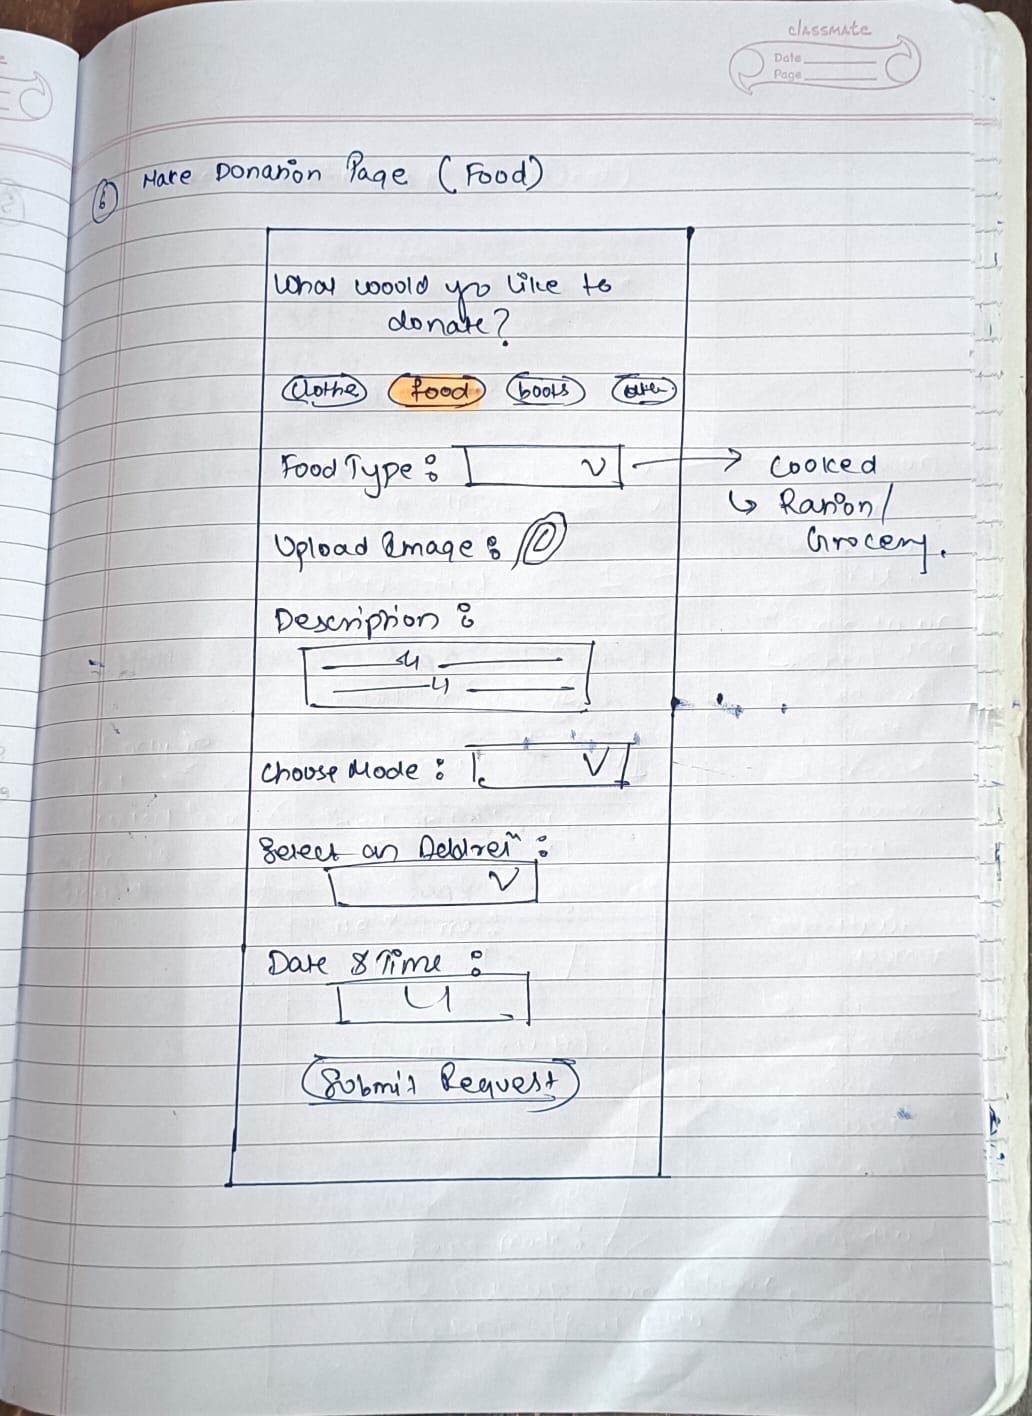 classmate
Date
Page
6 Make Donation Page (Food)
What woold yo like to
donate?
Clothe food books other
Food Type : V → Cooked
↳ Ration/
Grocery.
Upload Image :
Description :
Choose Mode : V
Select an Address :
V
Date & Time :
Submit Request